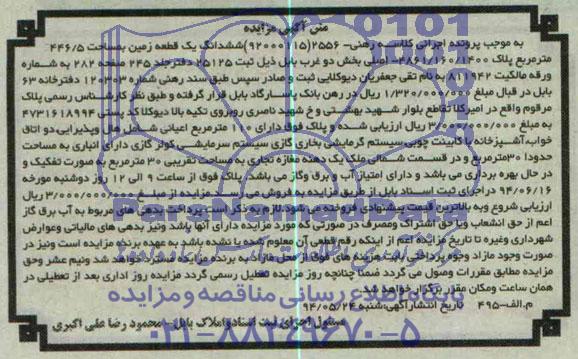 متن آگهی مزایده
به موجب پرونده اجرائی کلاسه رهنی- 2556(15)92000 ششدانگ یک قطعه زمین بمساحت 446/5
مترمربع پلاک 1400/160/4861- اصلی بخش دو غرب بابل ذیل ثبت 25125 دفترجلد 245 صفحه 282 به شماره
ورقه مالکیت 811942 به نام تقی جعفریان دیوکلایی ثبت و صادر سپس طبق سند رهنی شماره 120303 دفترخانه 63
بابل در قبال مبلغ 1/320/000/000 ریال در رهن بانک پاسارگاد بابل قرار گرفته و طبق نظر کارشناس رسمی پلاک
مرقوم واقع در امیرکلا تقاطع بلوار شهید بهشتی و خ شهید ناصری روبروی تکیه بالا دیوکلا کد پستی 4731618994
به مبلغ 3/000/000/000 ریال ارزیابی شده و پلاک فوق دارای 100 مترمربع اعیانی شامل هال وپذیرایی دو اتاق
خواب آشپزخانه با کابینت چوبی سیستم گرمایشی بخاری گازی سیستم سرمایشی کولر گازی دارای انباری به مساحت
حدودا 30مترمربع و در قسمت شمالی ملک یک دهنه مغازه تجاری به مساحت تقریبی 30 مترمربع به صورت تفکیک و
در حال بهره برداری می باشد و دارای امتیاز آب و برق وگاز می باشد. پلاک فوق از ساعت 9 الی 12 روز دوشنبه مورخه
94/06/16 دراجرای ثبت اسناد بابل از طریق مزایده به فروش می رسد. مزایده از مبلغ 3/000/000/000 ریال
ارزیابی شروع وبه بالاترین قیمت پیشنهادی فروخته می شود.لازم به ذکر است پرداخت بدهی های مربوط به آب برق گاز
اعم از حق انشعاب ویا حق اشتراک ومصرف در صورتی که مورد مزایده دارای آنها باشد ونیز بدهی های مالیاتی وعوارض
شهرداری وغیره تا تاریخ مزایده اعم از اینکه رقم قطعی آن معلوم شده یا نشده باشد به عهده برنده مزایده است ونیز در
صورت وجود مازاد وجوه پرداختی بابت هزینه های فوق از محل مازاد به برنده مزایده مسترد خواهد شد ونیم عشر وحق
مزایده مطابق مقررات وصول می گردد ضمنا چنانچه روز مزایده تعطیل رسمی گردد مزایده روز اداری بعد از تعطیلی در
همان ساعت ومکان مقرر برگزار خواهد شد.
م.الف-495 تاریخ انتشار آگهی:شنبه 94/05/24
مسئول اجرای ثبت اسناد واملاک بابل - محمود رضا علی اکبری
پایگاه اطلاع رسانی مناقصه و مزایده
021-88349670-5